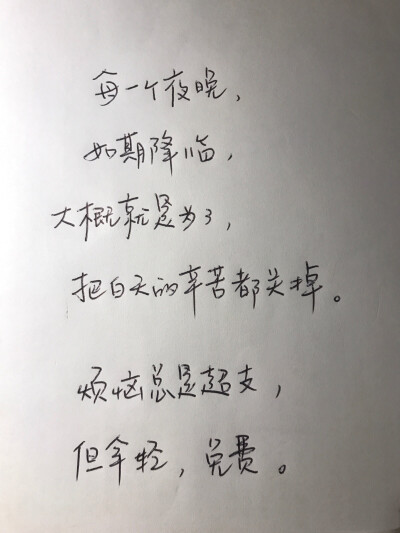 每一个夜晚，
如期降临，
大概就是为了，
把白天的辛苦都关掉。
烦恼总是超支，
但拿轻，免费。